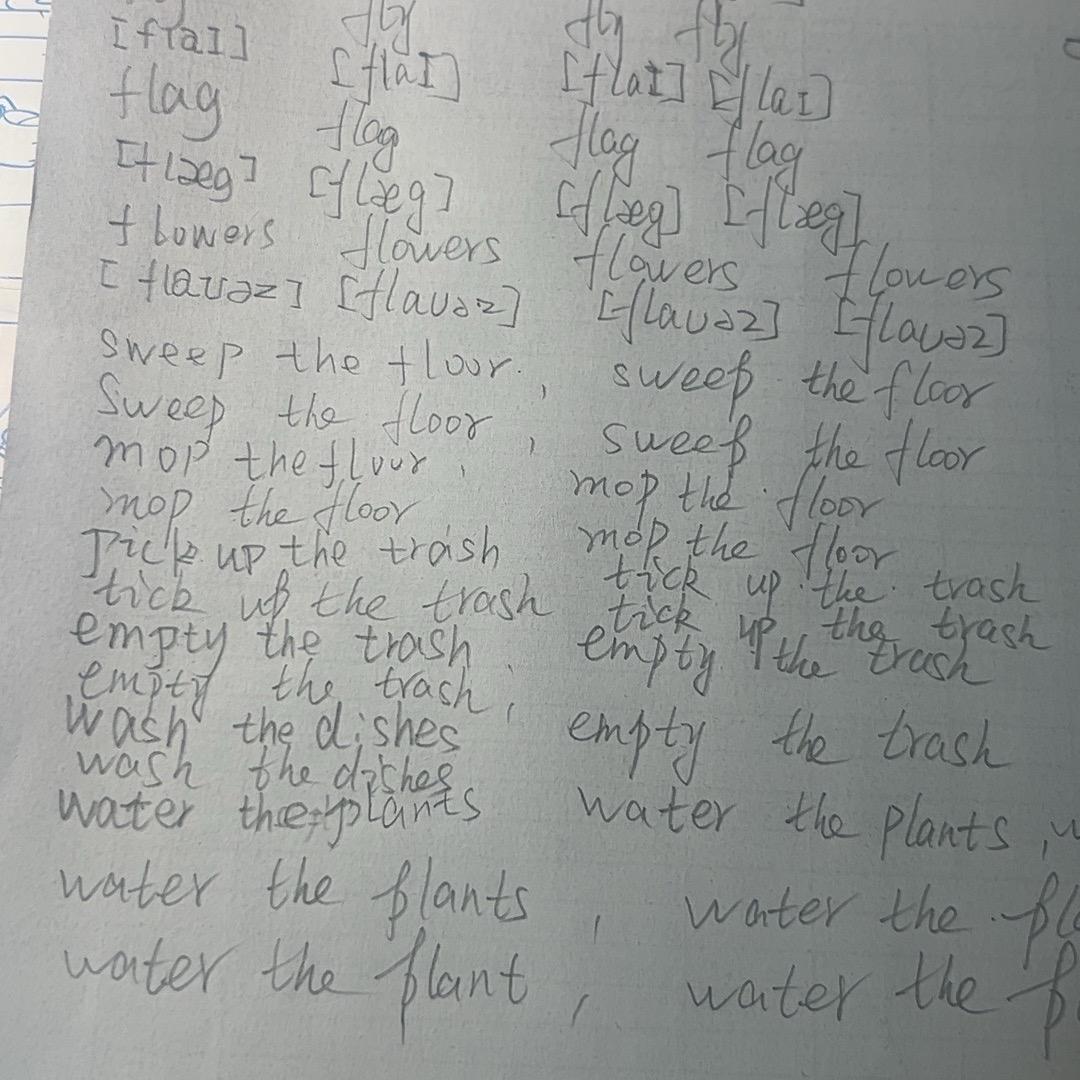 fly fly fly
[flaI] [flaI] [flaI] [flaI]
flag flag flag flag
[flæg] [flæg] [flæg] [flæg]
flowers flowers flowers flowers
[flaʊəz] [flaʊəz] [flaʊəz] [flaʊəz]
sweep the floor. , sweep the floor
Sweep the floor , sweep the floor
mop the floor , mop the floor
mop the floor mop the floor
Pick up the trash tick up the trash
tick up the trash tick up the trash
empty the trash , empty the trash
empty the trash , empty the trash
Wash the dishes
wash the dishes
water the plants water the plants ,
water the plants , water the
water the plant , water the